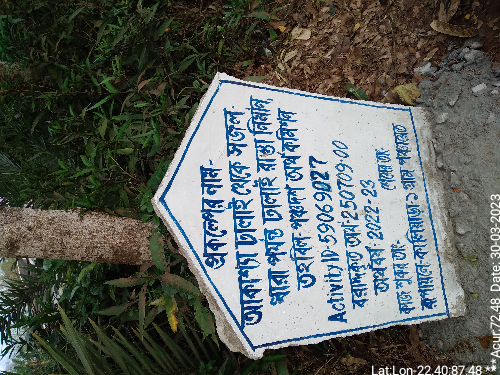 প্রকল্পের নাম-
আকাশ্যা ঢালাই থেকে সজল
ধারা পর্যন্ত ঢালাই রাস্তা নির্মান
তহবিল- পঞ্চদশ অর্থ কমিশন
Activity ID-59069027
বরাদ্দকৃত অর্থ: 250709.00
অর্থবর্ষ: 2022-23
কাজ শুরুর তাং- শেষের তাং-
গ্রাম পঞ্চায়েত
Lat:Lon-22.40:87.48
Date: 30.03.2023